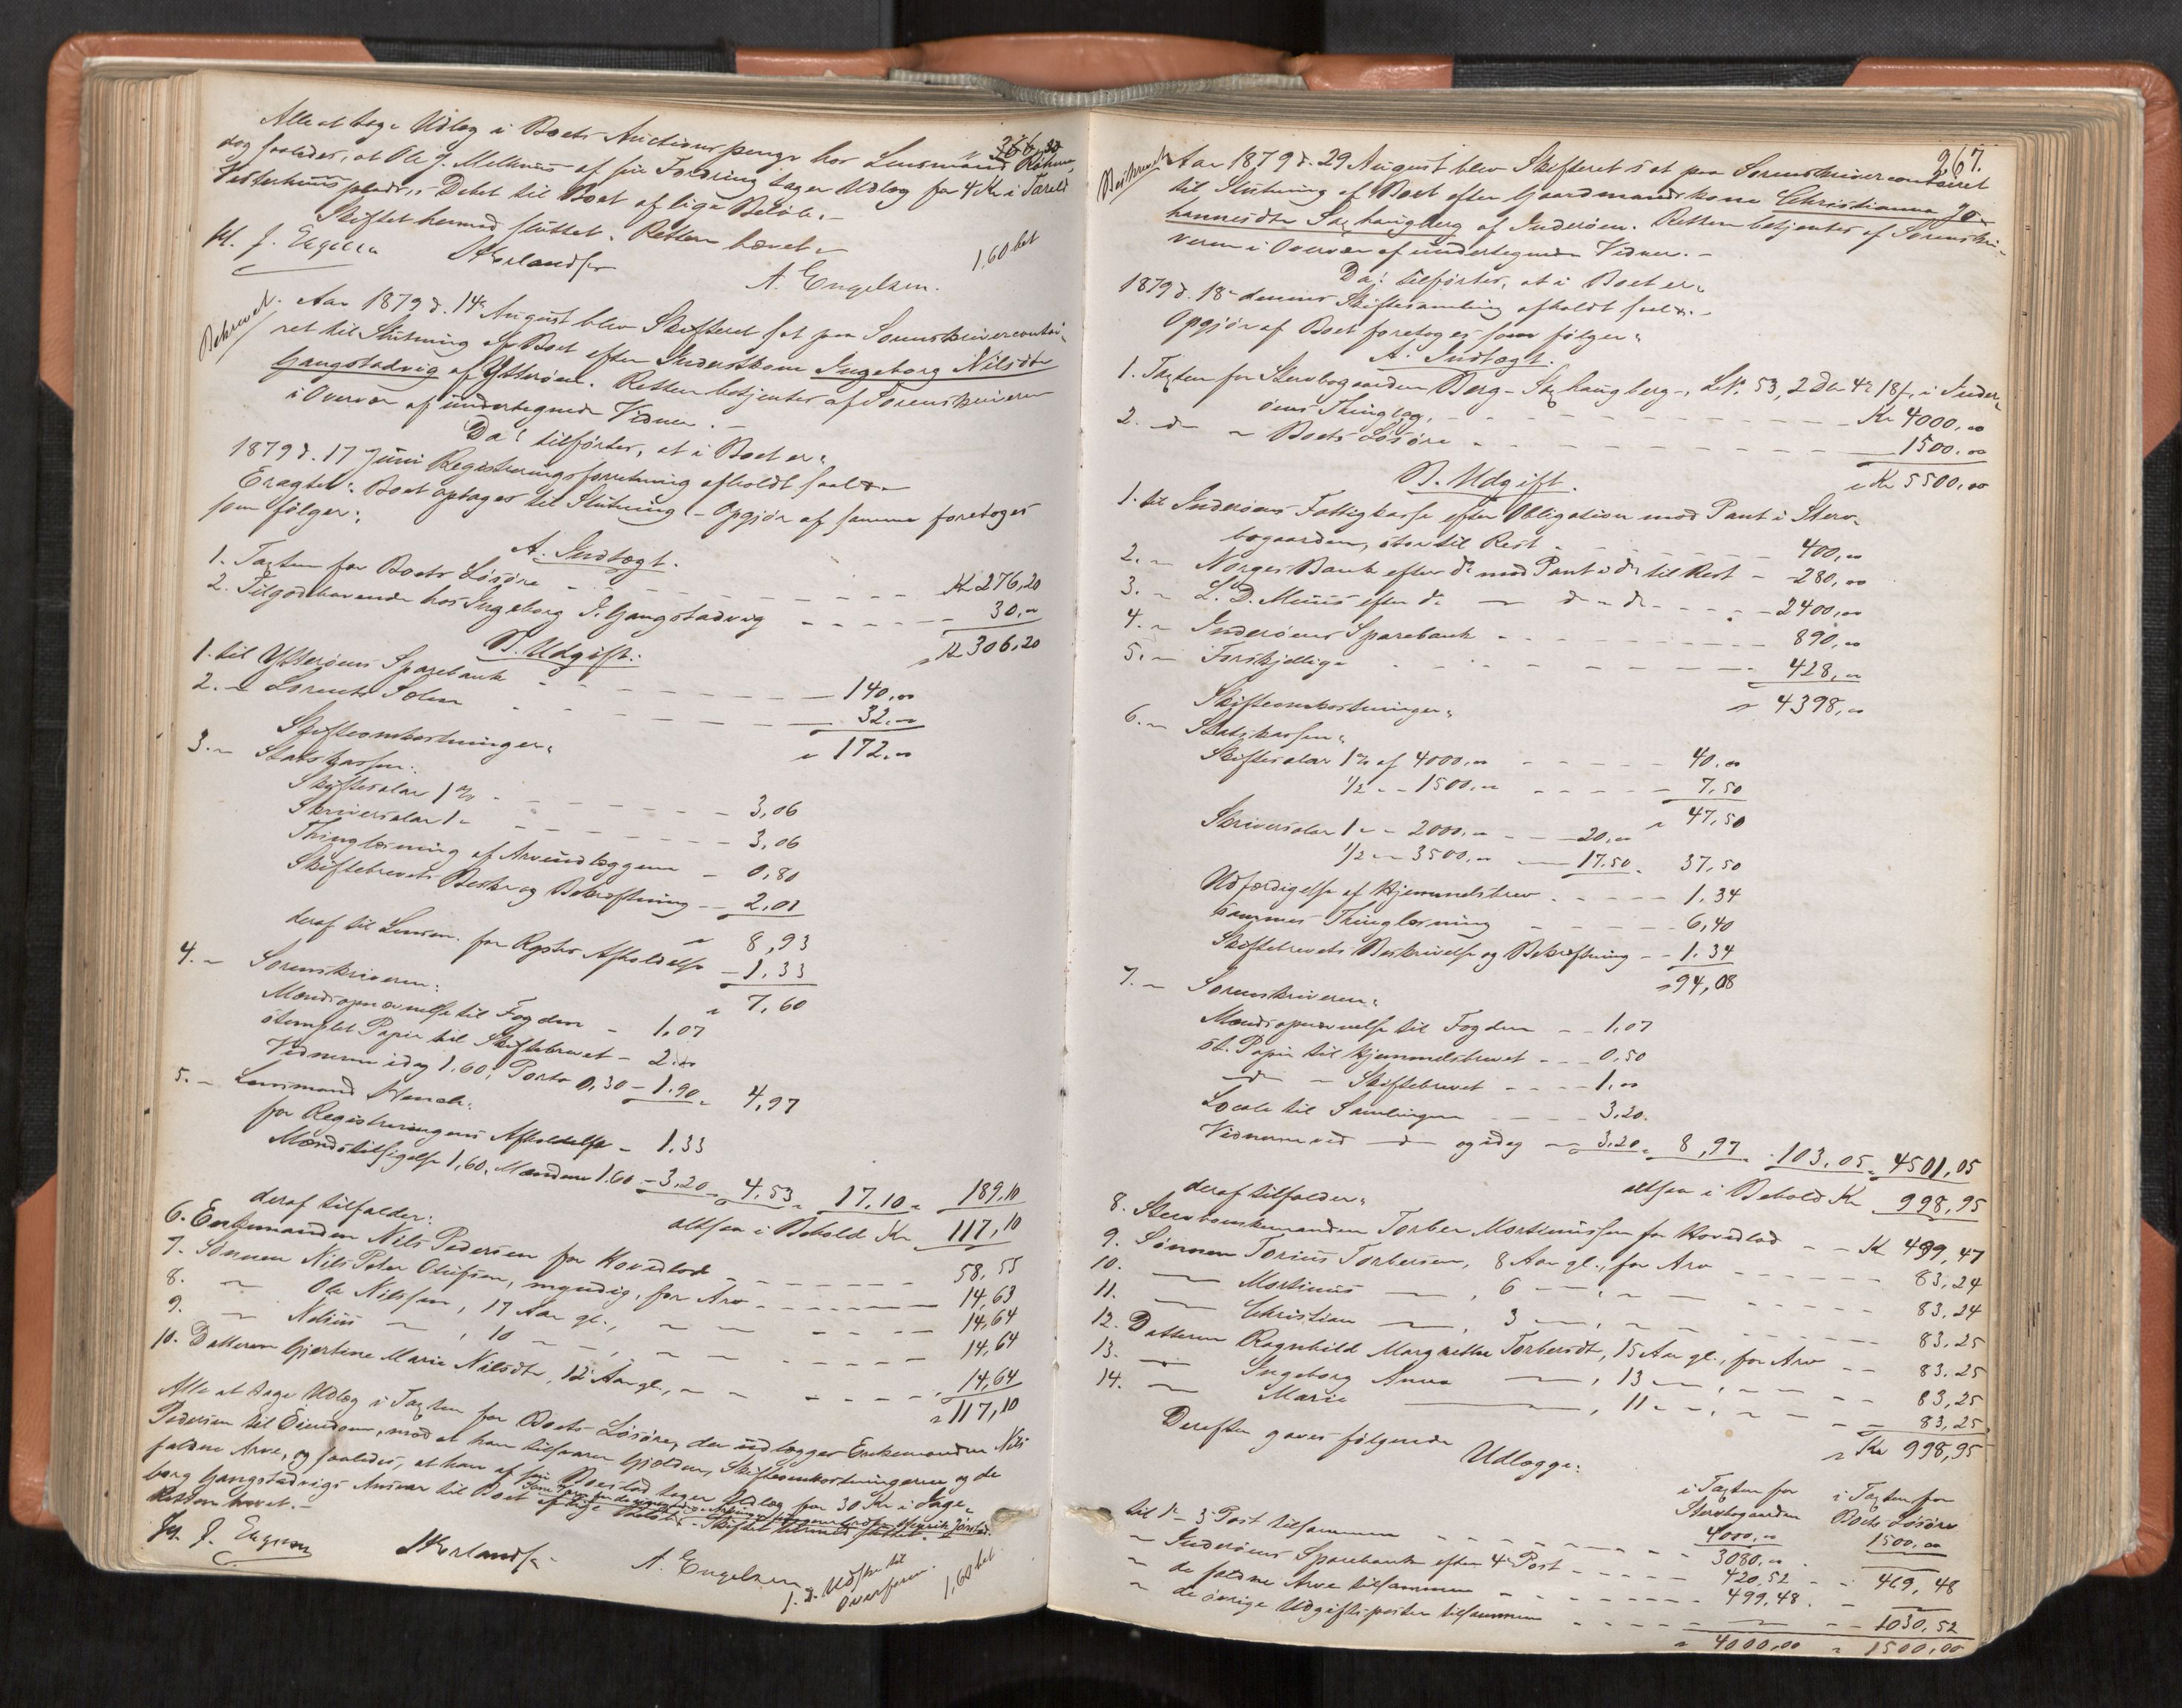 Alle at tage Udlæg i Boets Auctionspenge hos Lensmand Røhme,
dog saaledes, at Ole J. Melhuus af sin Fordring tager Udlæg for 4 Kr i Tarald
Vesterhuusplads's Debet til Boet af lige Beløb. -
Skiftet hermed sluttet. Retten hævet.
A. Engelsen.
1,60 bet
Bekrevet.
Aar 1879 d. 14de August blev Skifteret sat paa Sorenskrivercontoi-
ret til Slutning af Boet efter Inderstkone Ingeborg Nilsdtr
Gangstadvig af Ytterøen. Retten betjentes af Sorenskriveren
i Overvær af undertegnede Vidner. -
Da! tilførtes, at i Boet er:
1879 d. 17 Juni Registreringsforretning afholdt saal.
Eragtet: Boet optages til Slutning - Opgjør af samme foretoges
som følger:
A. Indtægt.
1. Taxten for Boets Løsøre - - - Kr 276,20
2. Tilgodehavende hos Ingeborg J. Gangstadvig - - - 30.„
„ Kr 306,20
B. Udgift:
1. til Ytterøens Sparebank - - - 140.00
2. „ Lorents - - - 32.„
„ 172.00
Skifteomkostninger:
3. „ Statskassen:
Skiftesalar 1 % - - - 3,06
Skriversalar 1 „ - - - 3,06
Thinglæsning af Arveudlæggene - 0,80
Skiftebrevets Beskr og Bekræftning - 2,01
„ 8,93
deraf til Lensm. for Regstrs Afholdelse - 1.33
„ 7,60
4. „ Sorenskriveren:
Mændsopnævnelse til Fogden - 1,07
stemplet Papir til Skiftebrevet - 2.00
Vidnerne idag 1,60, Porto 0,30 - 1,90 „ 4,97
5. „ Lensmand
for Registreringens Afholdelse - 1.33
Mændstilsigelse 1,60, Mændene 1.60 - 3,20 „ 4,53 „ 17,10 „ 189,10
altsaa i Behold Kr 117,10
deraf tilfalder:
6. Enkemanden Nils Pedersen for Hovedlod - - - 58,55
7. Sønnen Nils Peter Olufsen, myndig, for Arv - - - 14,63
8. „ Ole Nilssen, 17 Aar gl., „ „ - - - 14,64
9. „ Nelius „ , 10 „ , „ „ - - - 14,64
10. Datteren Gjertine Marie Nilsdtr, 12 Aar gl., „ „ - - - 14,64
„ 117,10
Alle at tage Udlæg i Taxten for Boets Løsøre, der udlægges Enkemanden Nils
Pedersen til Eiendom, mod at han tilsvarer Gjelden, Skifteomkostningerne og de
faldne Arve, og saaledes, at han af sin Boeslod tager Udlæg for 30 Kr i Inge-
borg Gangstadvigs Ansvar til Boet af lige Beløb. - Skiftet hermed sluttet.
Retten hævet. -
A. Engelsen
1,60 bet
267.
Beskrevet
Aar 1879 d. 29 August blev Skifteret sat paa Sorenskrivercontoiret
til Slutning af Boet efter Gaardmandskone Christianna Jo-
hannesdtr Saxhaugberg af Inderøen. Retten betjentes af Sorenskri-
veren i Overvær af undertegnede Vidner. -
Da! tilførtes, at i Boet er:
1879 d. 18de dennes Skiftesamling afholdt saal. -
Opgjør af Boet foretoges som følger:
A. Indtægt:
1. Taxten for Stervbogaarden Berg - Saxhaugberg -, L.No. 53, 2 Dlr 4 18 ß, i Inder-
øens Thinglag, - - - Kr 4000.00
2. do „ Boets Løsøre - - - 1500.00
„ Kr 5500,00
B. Udgift.
1. til Inderøens Fattigkasse efter Obligation med Pant i Sterv-
bogaarden, stor til Rest - - - 400,00
2. „ Norges Bank efter do med Pant i do til Rest - 280,00
3. „ L. D. Muus efter do - do „ do - - - 2400,00
4. „ Inderøens Sparebank - - - 890,00
5. „ Forskjellige - - - 428,00
„ 4398,00
Skifteomkostninger:
6. „ Statskassen:
Skiftesalar 1 % af 4000.00 - - - 40.00
1/2 „ „ 1500.00 - - - 7,50
„ 47,50
Skriversalar 1 „ „ 2000.00 - - 20,00
1/2 „ „ 3500.00 - - 17.50 „ 37,50
Udfærdigelse af Hjemmelsbrev - - - 1.34
sammes Thinglæsning - - - 6,40
Skiftebrevets Beskrivelse og Bekræftning - - 1.34
„ 94,08
7. „ Sorenskriveren:
Mændsopnævnelse til Fogden - - 1,07
st. Papir til Hjemmelsbrevet - - - 0,50
do „ Skiftebrevet - - - 1,00
Locale til Samlingen - - - 3.20.
Vidnerne ved do og idag - 3.20 „ 8,97 „ 103.05 „ 4501,05
altsaa i Behold Kr 998,95
deraf tilfalder:
8. Stervboenkemanden Torber Mortinussen for Hovedlod - - Kr 499,47
9. Sønnen Torius Torbersen, 8 Aar gl., for Arv - - - 83,24
10. „ Mortinus „ , 6 „ , „ - - - 83.24
11. „ Christian „ , 3 „ , „ - - - 83,25
12. Datteren Ragnhild Margrethe Torbersdt, 15 Aar gl., for Arv - - 83.25
13. „ Ingeborg Anna „ , 13 „ , „ - - - 83,25
14. „ Marie „ , 11 „ , „ - - - 83,25
„ Kr 998,95
Derefter gaves følgende
Udlægge:
i Taxten for Stervbogaarden i Taxten for Boets Løsøre
4000.00 1500.00
til 1ste - 3die Post tilsammen - - - 3080.00
„ Inderøens Sparebank efter 4de Post - - - 420,52 „ 469,48
„ de faldne Arve tilsammen - - - 499,48.
„ de øvrige Udgiftsposter tilsammen - - - 1030,52
„ 4000,00 „ 1500,00